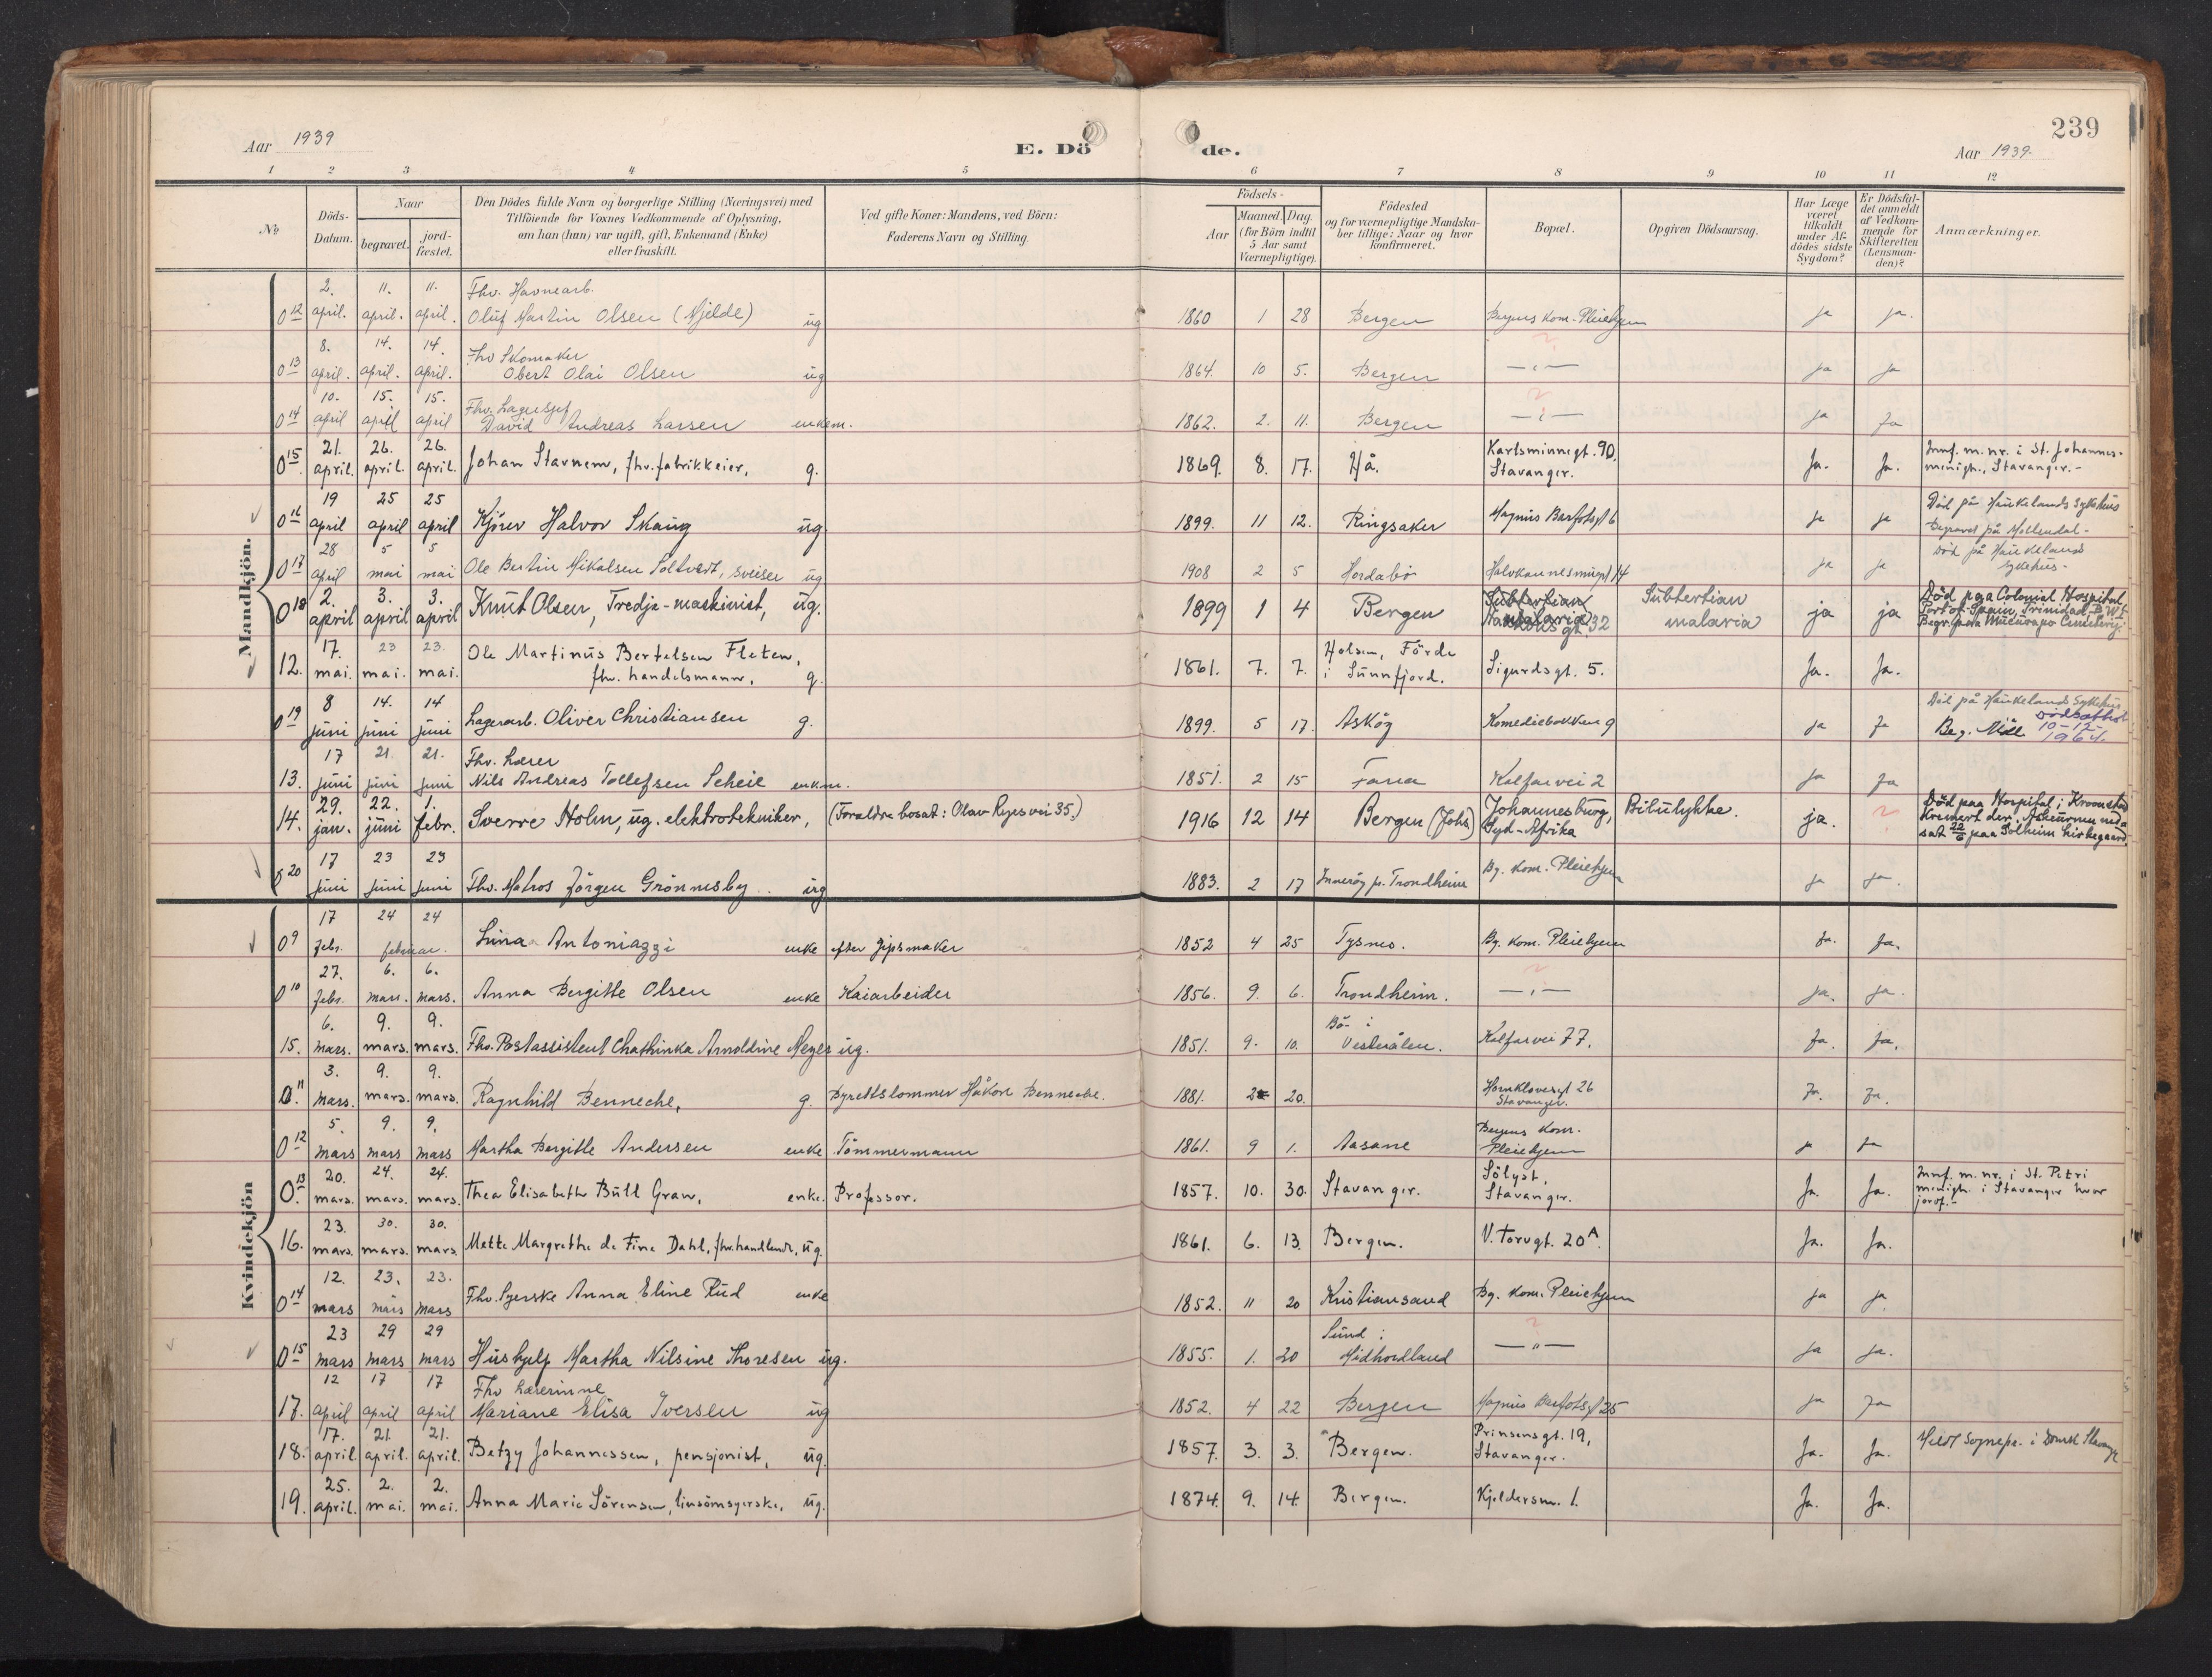 239
Aar 1939
E. Dö de.
Aar 1939.
1 2 3 4 5 6 7 8 9 10 11 12
№
Döds-
Datum.
Naar
begravet.
jord-
fæstet.
Den Dödes fulde Navn og borgerlige Stilling (Næringsvei) med
Tilföiende for Voxnes Vedkommende af Oplysning,
om han (hun) var ugift, gift, Enkemand (Enke)
eller fraskilt.
Ved gifte Koner: Mandens, ved Börn:
Faderens Navn og Stilling.
Födsels-
Aar
Maaned. Dag.
(for Börn indtil
5 Aar samt
Værnepligtige).
Födested
og for værnepligtige Mandska-
ber tillige: Naar og hvor
konfirmeret.
Bopæl.
Opgiven Dödsaarsag.
Har Læge
været
tilkaldt
under Af-
dödes sidste
Sygdom?
Er Dödsfal-
det anmeldt
af Vedkom-
mende for
Skifteretten
(Lensman-
den)?
Anmærkninger.
Mandkjön.
2. 11. 11. Fhv. Havnearb.
0 12 april. april. april. Oluf Martin Olsen (Mjelde) ug 1860 1 28 Bergen Bergens kom. Pleiehjem ja ja.
8. 14. 14. Fhv Skomaker
0 13 april. april. april. Obert Olai Olsen ug 1864. 10 5. Bergen —"— ja ja
10. 15. 15. Fhv. Lagersjef
0 14 april april april David Andreas Larsen enkem. 1862. 2. 11. Bergen —"— ja ja
21. 26. 26. Karlsminnegt. 90, Innf. m. nr. i St. Johannes-
0 15. april. april. april. Johan Stavnem, fhv. fabrikkeier, g. 1869. 8. 17. Hå. Stavanger. Ja. Ja. menigh., Stavanger.-
19 25 25 Död på Haukelands Sykehus
0 16 april april april Kjörer Halvor Skaug ug. 1899. 11 12. Ringsaker Magnus Barfotsgt 6 ja ja Begravet på Möllendal-
28 5 5 Död på Haukelands
0 17 april mai mai Ole Bertin Mikalsen Soltvedt, sveiser ug 1908 2 5 Hordabö 14 ja ja sykehus-
2. 3. 3. Subtertian Subtertian Död paa Colonial Hospital
0 18 april april april Knut Olsen, Tredje-maskinist, ug. 1899 1 4 Bergen malaria gt 32 malaria ja ja Port of Spain, Trinidad B.W.I.
Begr. paa Mucurapo Cemetery.
17. 23 23. Ole Martinus Bertelsen Fleten, Holsen, Förde
12. mai. mai. mai. fhv. handelsmann, g. 1861. 7. 7. i Sunnfjord. Sigurdsgt. 5. Ja. Ja.
8 14. 14 Död på Haukelands Sykehus
0 19 juni juni juni Lagerarb. Oliver Christiansen g. 1899. 5 17. Asköy Komediebakken 9 ja ja Beg. Möll. dödsattest 10-12-1964.
17 21. 21. Fhv. Lærer
13. juni juni juni Nils Andreas Tollefsen Scheie enkm. 1851. 2 15 Fana Kalfarvei 2 ja ja
29. 22. 1. Johannesburg, Död paa Hospital i Kroonstad
14. jan. juni febr. Sverre Holm, ug. elektrotekniker, (Foreldre bosat: Olav Ryes vei 35.) 1916 12 14 Bergen (Johs) Syd-Afrika Bilulykke. ja. ? Kremert der. Askeurnen ned-
sat 22/6 paa Solheim kirkegaard.
17 23 23
0 20 juni juni juni Fhv. Matros Jörgen Grönnesby ug 1883. 2 17 Inneröy pr. Trondheim By. kom. Pleiehjem ja ja.
Kvindekjön
17 24 24
0 9 febr. februar. Lina Antoniazzi enke efter gipsmaker 1852 4 25 Tysnes. By. kom. Pleiehjem Ja. Ja.
27. 6. 6.
0 10 febr. mars. mars. Anna Bergitte Olsen enke Kaiarbeider 1856. 9. 6. Trondheim. —"— ja. ja.
6. 9. 9. Bö i
15. mars. mars. mars. Fhv. Postassistent Chathinka Arnoldine Meyer ug. 1851. 9. 10. Vesterålen. Kalfarvei 77. Ja. Ja.
3. 9. 9.
0 11 mars. mars. mars. Ragnhild Benneche, g. Byrettsdommer Håkon Benneche. 1881. 2 20. Hornklovesgt 26 Stavanger. Ja. Ja.
5. 9. 9. Bergens kom.
0 12 mars mars mars Martha Bergitte Andersen enke Tömmermann 1861. 9 1. Aasane Pleiehjem ja ja
20. 24. 24. Sölyst, Innf. m. nr. i St. Petri
0 13. mars. mars. mars. Thea Elisabeth Bull Gran, enke. Professor. 1857. 10. 30. Stavanger. Stavanger. Ja. Ja. menigh. i Stavanger hvor
jordf.-
23. 30. 30.
16. mars. mars. mars. Mette Margrethe de Fine Dahl, fhv. handlende, ug. 1861. 6. 13. Bergen. V. Torvgt. 20 A. Ja. Ja.
12. 23. 23.
0 14 mars mars mars Fhv. Syerske Anna Eline Rud enke 1852. 11 20 Kristiansand By. kom. Pleiehjem ja ja.
23 29 29 Sund i
0 15 mars mars mars Hushjelp Martha Nilsine Thoresen ug. 1855. 1. 20 Midhordland —"— ja ja.
12 17 17 Fhv Lærerinne
17. april april april Mariane Elisa Iversen ug 1852. 4 22 Bergen Magnus Barfotsgt 25 ja ja
17. 21. 21. Prinsensgt. 19,
18. april. april. april. Betzy Johannessen, pensjonist, ug. 1857. 3. 3. Bergen. Stavanger. Ja. Ja. Meldt Sognepr. i Domk Stavanger
25. 2. 2.
19. april. mai. mai. Anna Marie Sörensen, linsömsyerske, ug. 1874. 9. 14. Bergen. Kjeldersm. 1. Ja. Ja.